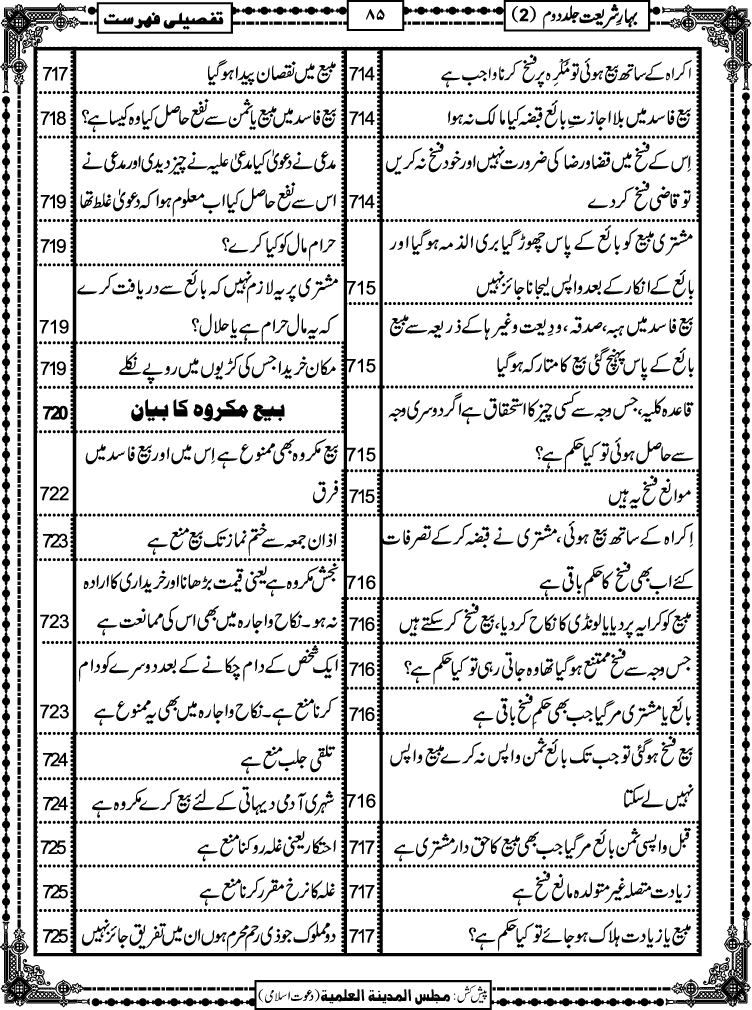 بہارِ شریعت جلد دوم (2)
۸۵
تفصیلی فہرست
اکراہ کے ساتھ بیع ہوئی تو مُکْرِہ پر فسخ کرنا واجب ہے 714
بیع فاسد میں بلا اجازتِ بائع قبضہ کیا مالک نہ ہوا 714
اِس کے فسخ میں قضا و رضا کی ضرورت نہیں اور خود فسخ نہ کریں
تو قاضی فسخ کر دے 714
مشتری مبیع کو بائع کے پاس چھوڑ گیا بری الذمہ ہوگیا اور
بائع کے انکار کے بعد واپس لیجانا جائز نہیں 715
بیع فاسد میں ہبہ، صدقہ، ودیعت وغیرہا کے ذریعہ سے مبیع
بائع کے پاس پہنچ گئی بیع کا متارکہ ہوگیا 715
قاعدہ کلیہ، جس وجہ سے کسی چیز کا استحقاق ہے اگر دوسری وجہ
سے حاصل ہوئی تو کیا حکم ہے؟ 715
موانع فسخ یہ ہیں 715
اِکراہ کے ساتھ بیع ہوئی، مشتری نے قبضہ کر کے تصرفات
کئے اب بھی فسخ کا حکم باقی ہے 716
مبیع کو کرایہ پر دیا یا لونڈی کا نکاح کر دیا، بیع فسخ کر سکتے ہیں 716
جس وجہ سے فسخ ممتنع ہوگیا تھا وہ جاتی رہی تو کیا حکم ہے؟ 716
بائع یا مشتری مر گیا جب بھی حکمِ فسخ باقی ہے 716
بیع فسخ ہوگئی تو جب تک بائع ثمن واپس نہ کرے مبیع واپس
نہیں لے سکتا 716
قبل واپسی ثمن بائع مر گیا جب بھی مبیع کا حق دار مشتری ہے 717
زیادت متصلہ غیر متولدہ مانع فسخ ہے 717
مبیع یا زیادت ہلاک ہو جائے تو کیا حکم ہے؟ 717
مبیع میں نقصان پیدا ہوگیا 717
بیع فاسد میں مبیع یا ثمن سے نفع حاصل کیا وہ کیسا ہے؟ 718
مدعی نے دعویٰ کیا مدعیٰ علیہ نے چیز دیدی اور مدعی نے
اس سے نفع حاصل کیا اب معلوم ہوا کہ دعویٰ غلط تھا 719
حرام مال کو کیا کرے؟ 719
مشتری پر یہ لازم نہیں کہ بائع سے دریافت کرے
کہ یہ مال حرام ہے یا حلال؟ 719
مکان خریدا جس کی کڑیوں میں روپے نکلے 719
بیع مکروہ کا بیان 720
بیع مکروہ بھی ممنوع ہے اِس میں اور بیع فاسد میں
فرق 722
اذان جمعہ سے ختم نماز تک بیع منع ہے 723
نجش مکروہ ہے یعنی قیمت بڑھانا اور خریداری کا ارادہ
نہ ہو۔ نکاح و اجارہ میں بھی اس کی ممانعت ہے 723
ایک شخص کے دام چکانے کے بعد دوسرے کو دام
کرنا منع ہے۔ نکاح و اجارہ میں بھی یہ ممنوع ہے 723
تلقی جلب منع ہے 724
شہری آدمی دیہاتی کے لئے بیع کرے مکروہ ہے 724
احتکار یعنی غلہ روکنا منع ہے 725
غلہ کا نرخ مقرر کرنا منع ہے 725
دو مملوک جو ذی رحم محرم ہوں ان میں تفریق جائز نہیں 725
پیش کش: مجلس المدینۃ العلمیۃ (دعوت اسلامی)